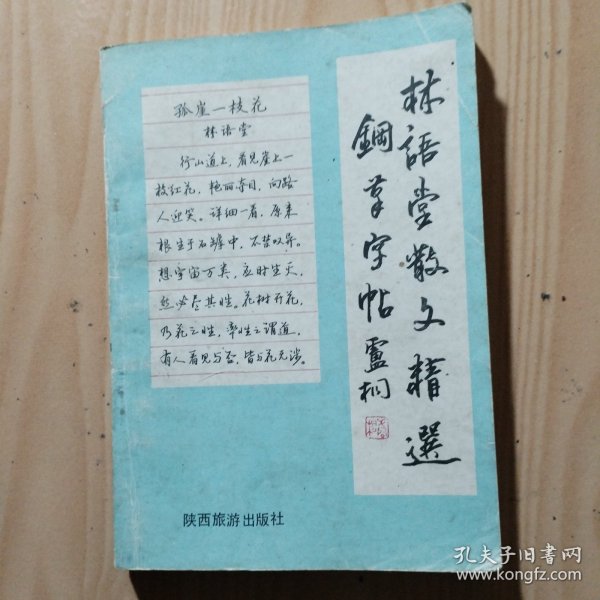 孤崖一枝花
林语堂
行山道上，看见崖上一
枝红花，艳丽夺目，向路
人迎笑。详细一看，原来
根生于石罅中，不禁叹异。
想宇宙万类，应时生灭，
然必尽其性。花树开花，
乃花之性，率性之谓道，
有人看见与否，皆与花无涉。
林語堂散文精選
鋼筆字帖
盧桐
陕西旅游出版社
孔夫子旧书网
www.kongfz.com